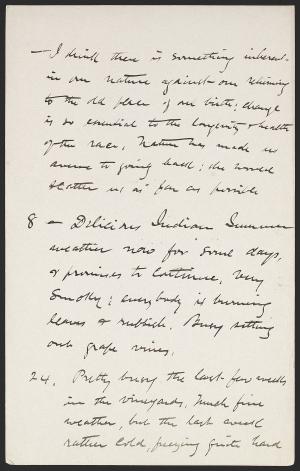 — I think there is something inherent
in our nature against our returning
to the old place of our birth; change
is so essential to the longevity & health
of the race, Nature has made us
averse to going back; she would
scatter us as far as possible
8 — Delicious Indian Summer
weather now for some days,
& promises to continue, very
smoky; everybody is burning
leaves & rubbish. Busy setting
out grape vines.
24. Pretty busy the last few weeks
in the vineyards, much fine
weather, but the last week
rather cold, freezing quite hard